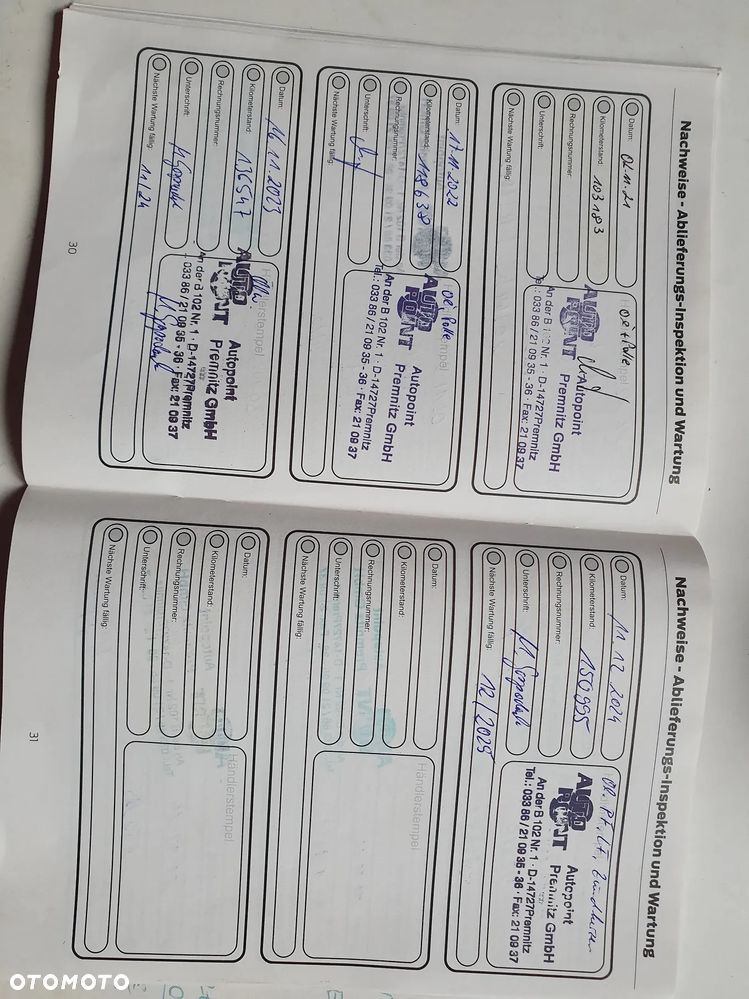 Nachweise - Ablieferungs-Inspektion und Wartung
Datum: 04.11.21
Kilometerstand: 103183
Rechnungsnummer:
Unterschrift:
Nächste Wartung fällig:
AUTO POINT
Autopoint
Premnitz GmbH
An der B 102 Nr. 1 · D-14727 Premnitz
Tel.: 033 86 / 21 09 35 - 36 · Fax: 21 09 37
Datum: 17.11.2022
Kilometerstand: 118638
Rechnungsnummer:
Unterschrift:
Nächste Wartung fällig:
AUTO POINT
Autopoint
Premnitz GmbH
An der B 102 Nr. 1 · D-14727 Premnitz
Tel.: 033 86 / 21 09 35 - 36 · Fax: 21 09 37
Datum: 16.11.2023
Kilometerstand: 136547
Rechnungsnummer:
Unterschrift:
Nächste Wartung fällig: 11/24
Händlerstempel
AUTO POINT
Autopoint
Premnitz GmbH
An der B 102 Nr. 1 · D-14727 Premnitz
033 86 / 21 09 35 - 36 · Fax: 21 09 37
30
Nachweise - Ablieferungs-Inspektion und Wartung
Datum: 11.12.2024
Kilometerstand: 150995
Rechnungsnummer:
Unterschrift:
Nächste Wartung fällig: 12/2025
AUTO POINT
Autopoint
Premnitz GmbH
An der B 102 Nr. 1 · D-14727 Premnitz
Tel.: 033 86 / 21 09 35 - 36 · Fax: 21 09 37
Datum:
Kilometerstand:
Rechnungsnummer:
Unterschrift:
Nächste Wartung fällig:
Händlerstempel
Datum:
Kilometerstand:
Rechnungsnummer:
Unterschrift:
Nächste Wartung fällig:
Händlerstempel
31
OTOMOTO